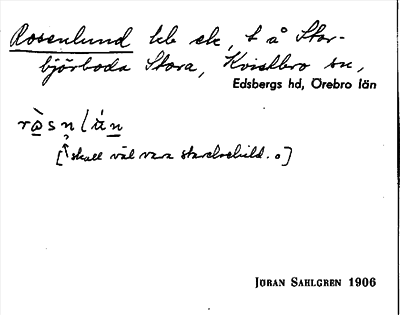 Rosenlund hb ek, t å Stor-
björboda Stora, Kvistbro sn,
Edsbergs hd, Örebro län
ròsnlún
[? skall väl vara o]
JÖRAN SAHLGREN 1906